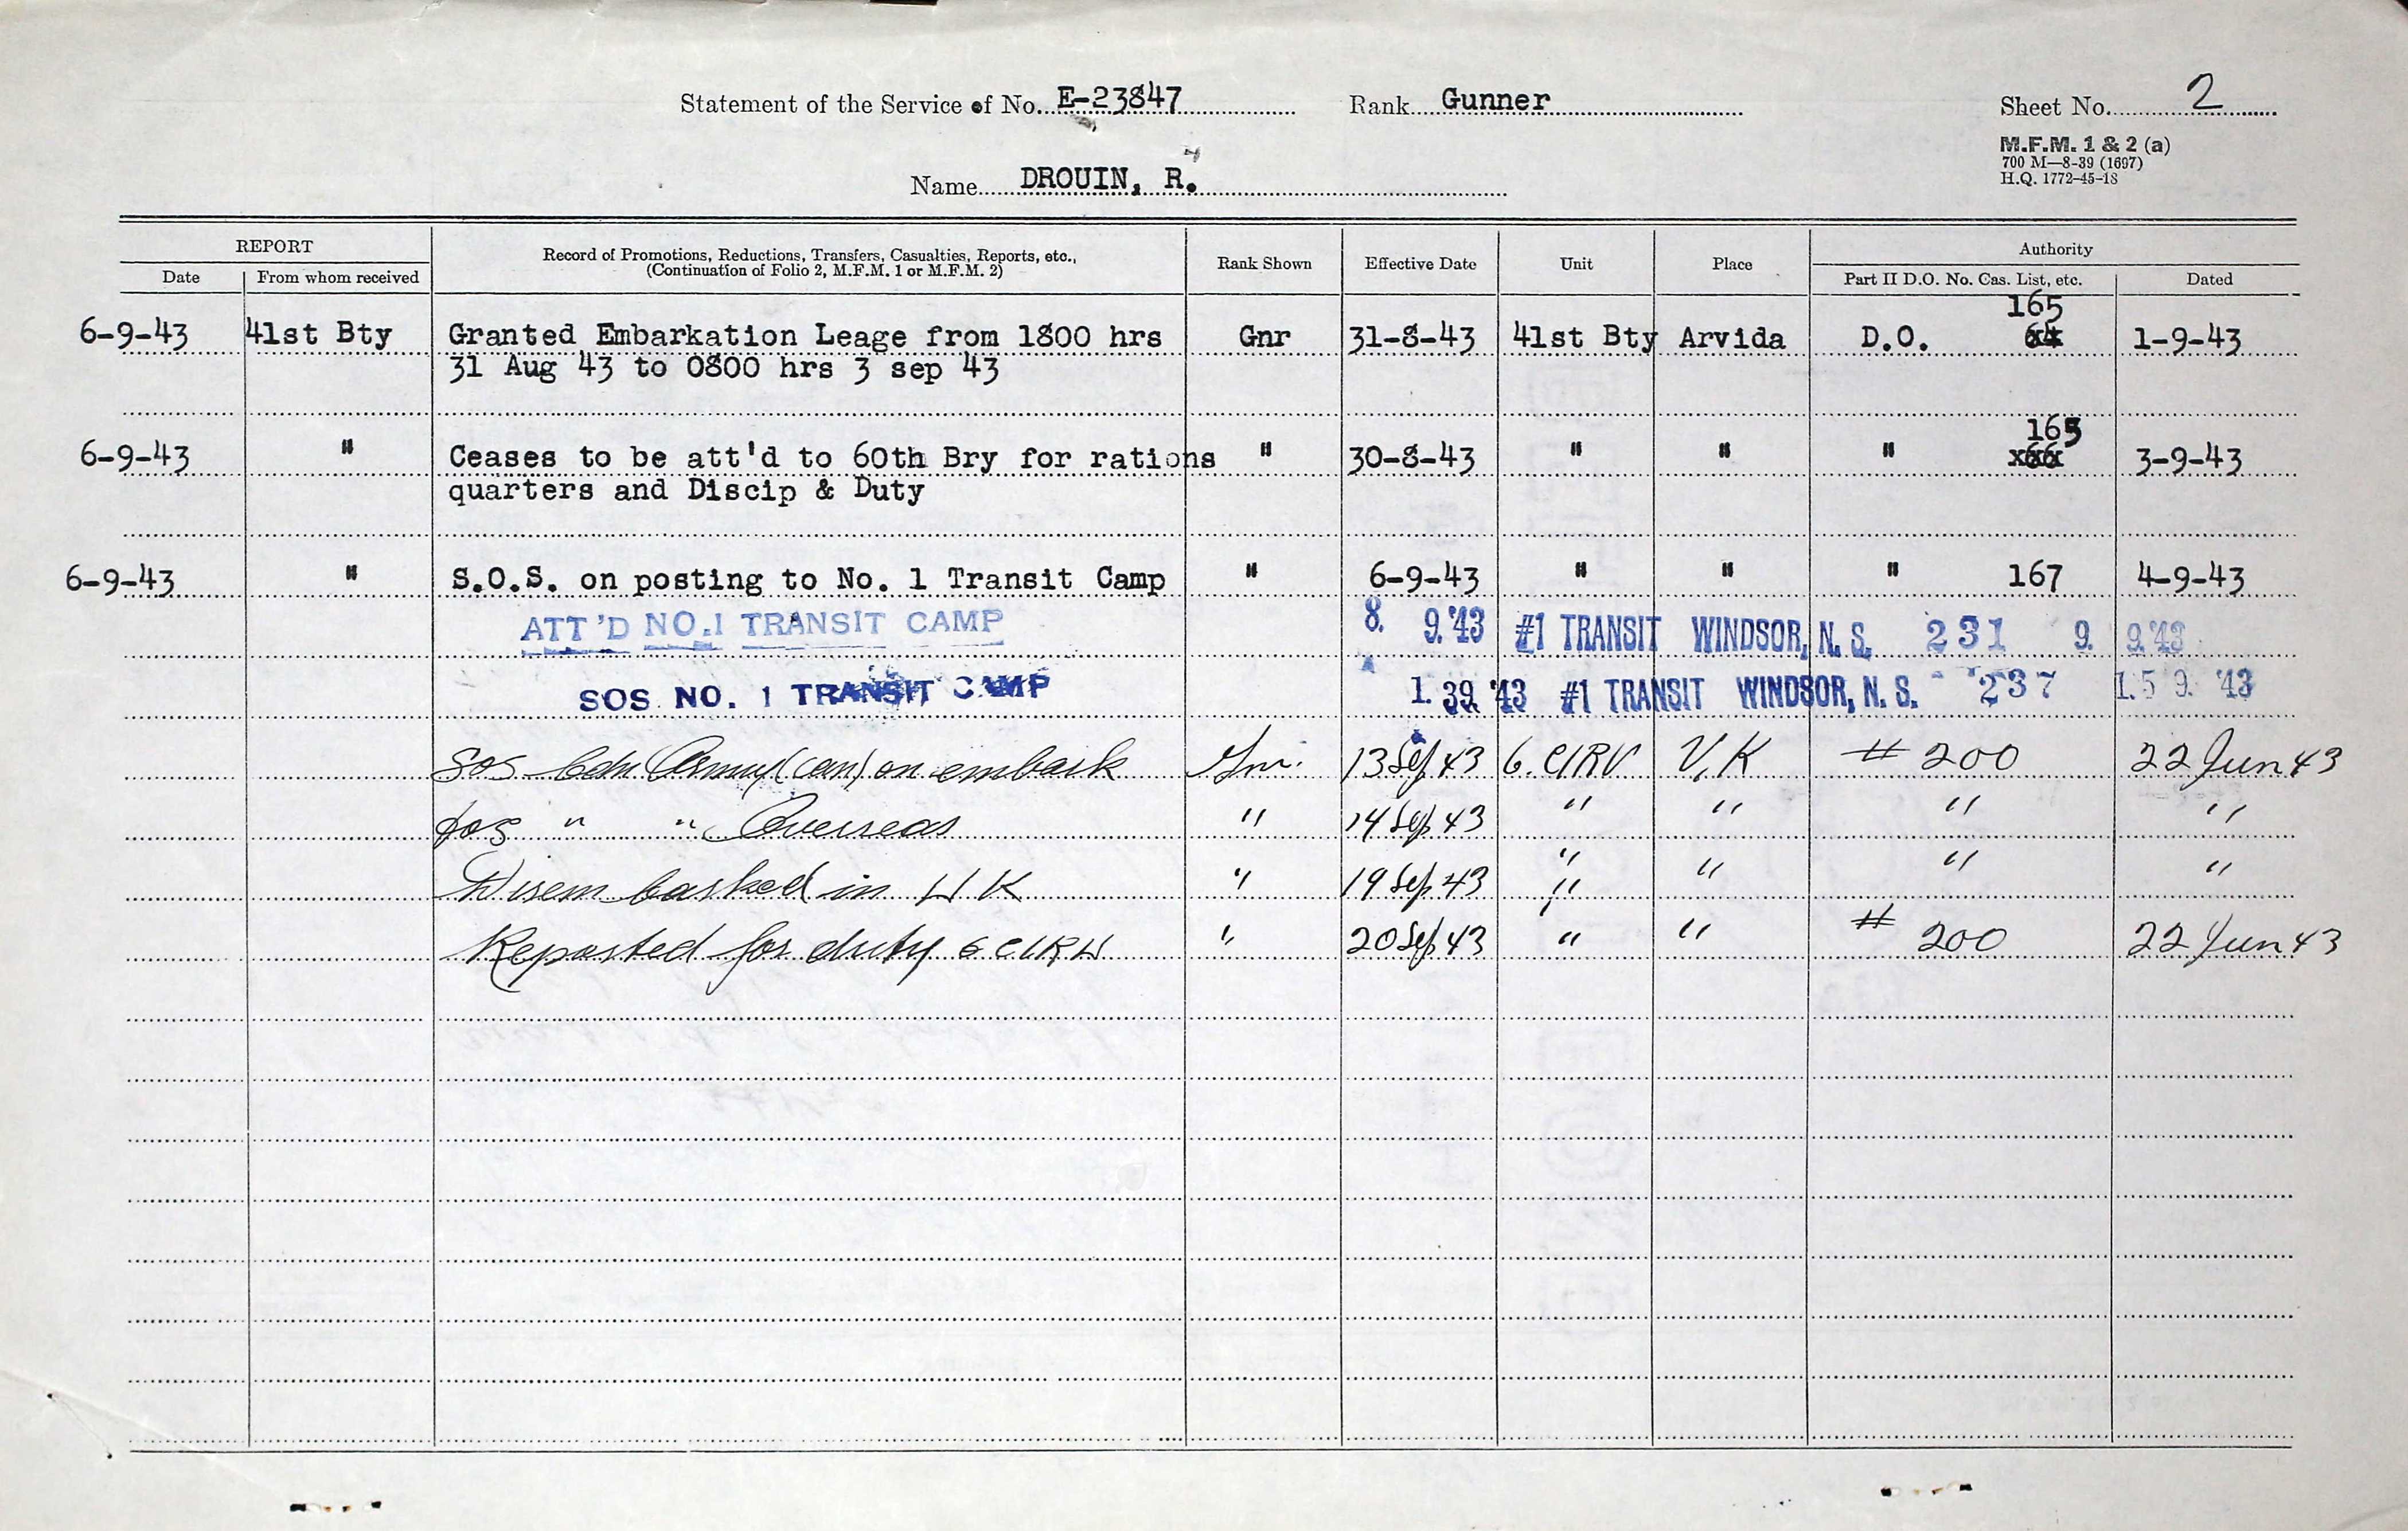 Statement of the Service of No. E-23847 Rank Gunner Sheet No. 2
M.F.M. 1 & 2 (a)
700 M—8-39 (1697)
H.Q. 1772-45-18
Name DROUIN, R.
REPORT
Date From whom received
Record of Promotions, Reductions, Transfers, Casualties, Reports, etc.,
(Continuation of Folio 2, M.F.M. 1 or M.F.M. 2)
Rank Shown Effective Date Unit Place
Authority
Part II D.O. No. Cas. List, etc. Dated
165
6-9-43 41st Bty Granted Embarkation Leage from 1800 hrs Gnr 31-8-43 41st Bty Arvida D.O. 1-9-43
31 Aug 43 to 0800 hrs 3 sep 43
165
6-9-43 " Ceases to be att'd to 60th Bry for rations " 30-8-43 " " " 3-9-43
quarters and Discip & Duty
6-9-43 " S.O.S. on posting to No. 1 Transit Camp " 6-9-43 " " " 167 4-9-43
ATT'D NO.1 TRANSIT CAMP 8. 9.'43 #1 TRANSIT WINDSOR, N. S. 231 9. 9.'43
SOS NO. 1 TRANSIT CAMP #1 TRANSIT WINDSOR, N. S. 237 1.5 9. '43
SOS Cdn Army (can) on embark Gnr. 13 Sep 43 6. CIRU U,K # 200 22 Jun 43
Tos " " Overseas " 14 Sep 43 " " " "
Disembarked in U K " 19 Sep 43 " " " " "
Reported for duty 6 CIRU " 20 Sep 43 " " # 200 22 Jun 43